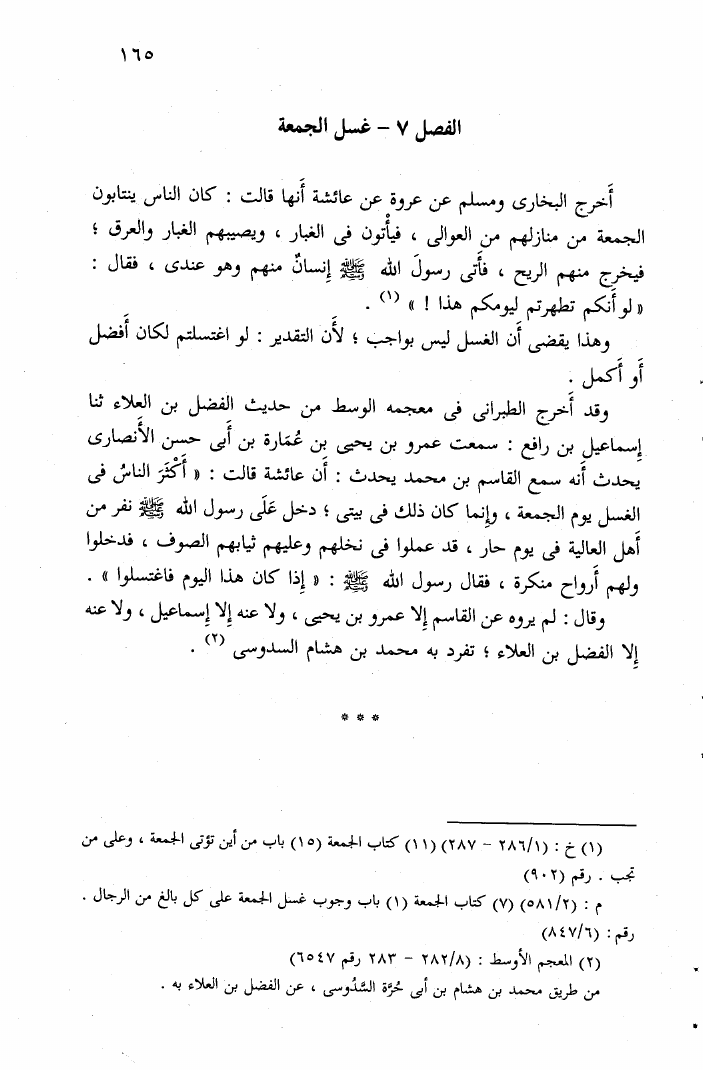 ١٦٥
الفصل ٧ – غسل الجمعة
أَخرج البخارى ومسلم عن عروة عن عائشة أَنها قالت : كان الناس ينتابون
الجمعة من منازلهم من العوالى ، فيأْتون فى الغبار ، ويصيبهم الغبار والعرق ؛
فيخرج منهم الريح ، فأَتى رسولَ الله ﷺ إِنسانٌ منهم وهو عندى ، فقال :
« لو أَنكم تطهرتم ليومكم هذا ! » (١) .
وهذا يقضى أَن الغسل ليس بواجب ؛ لأَن التقدير : لو اغتسلتم لكان أَفضل
أَو أَكمل .
وقد أَخرج الطبرانى فى معجمه الوسط من حديث الفضل بن العلاء ثنا
إِسماعيل بن رافع : سمعت عمرو بن يحيى بن عُمَارة بن أَبى حسن الأَنصارى
يحدث أَنه سمع القاسم بن محمد يحدث : أَن عائشة قالت : « أَكْثَرَ الناسُ فى
الغسل يوم الجمعة ، وإِنما كان ذلك فى بيتى ؛ دخل عَلَى رسول الله ﷺ نفر من
أَهل العالية فى يوم حار ، قد عملوا فى نخلهم وعليهم ثيابهم الصوف ، فدخلوا
ولهم أَرواح منكرة ، فقال رسول الله ﷺ : « إِذا كان هذا اليوم فاغتسلوا » .
وقال : لم يروه عن القاسم إِلا عمرو بن يحيى ، ولا عنه إِلا إِسماعيل ، ولا عنه
إِلا الفضل بن العلاء ؛ تفرد به محمد بن هشام السدوسى (٢) .
* * *
(١) خ : (٢٨٦/١ – ٢٨٧) (١١) كتاب الجمعة (١٥) باب من أين تؤتى الجمعة ، وعلى من
تجب . رقم (٩٠٢)
م : (٥٨١/٢) (٧) كتاب الجمعة (١) باب وجوب غسل الجمعة على كل بالغ من الرجال .
رقم : (٨٤٧/٦)
(٢) المعجم الأوسط : (٢٨٢/٨ – ٢٨٣ رقم ٦٥٤٧)
من طريق محمد بن هشام بن أبى خُرَّة السَّدُوسى ، عن الفضل بن العلاء به .